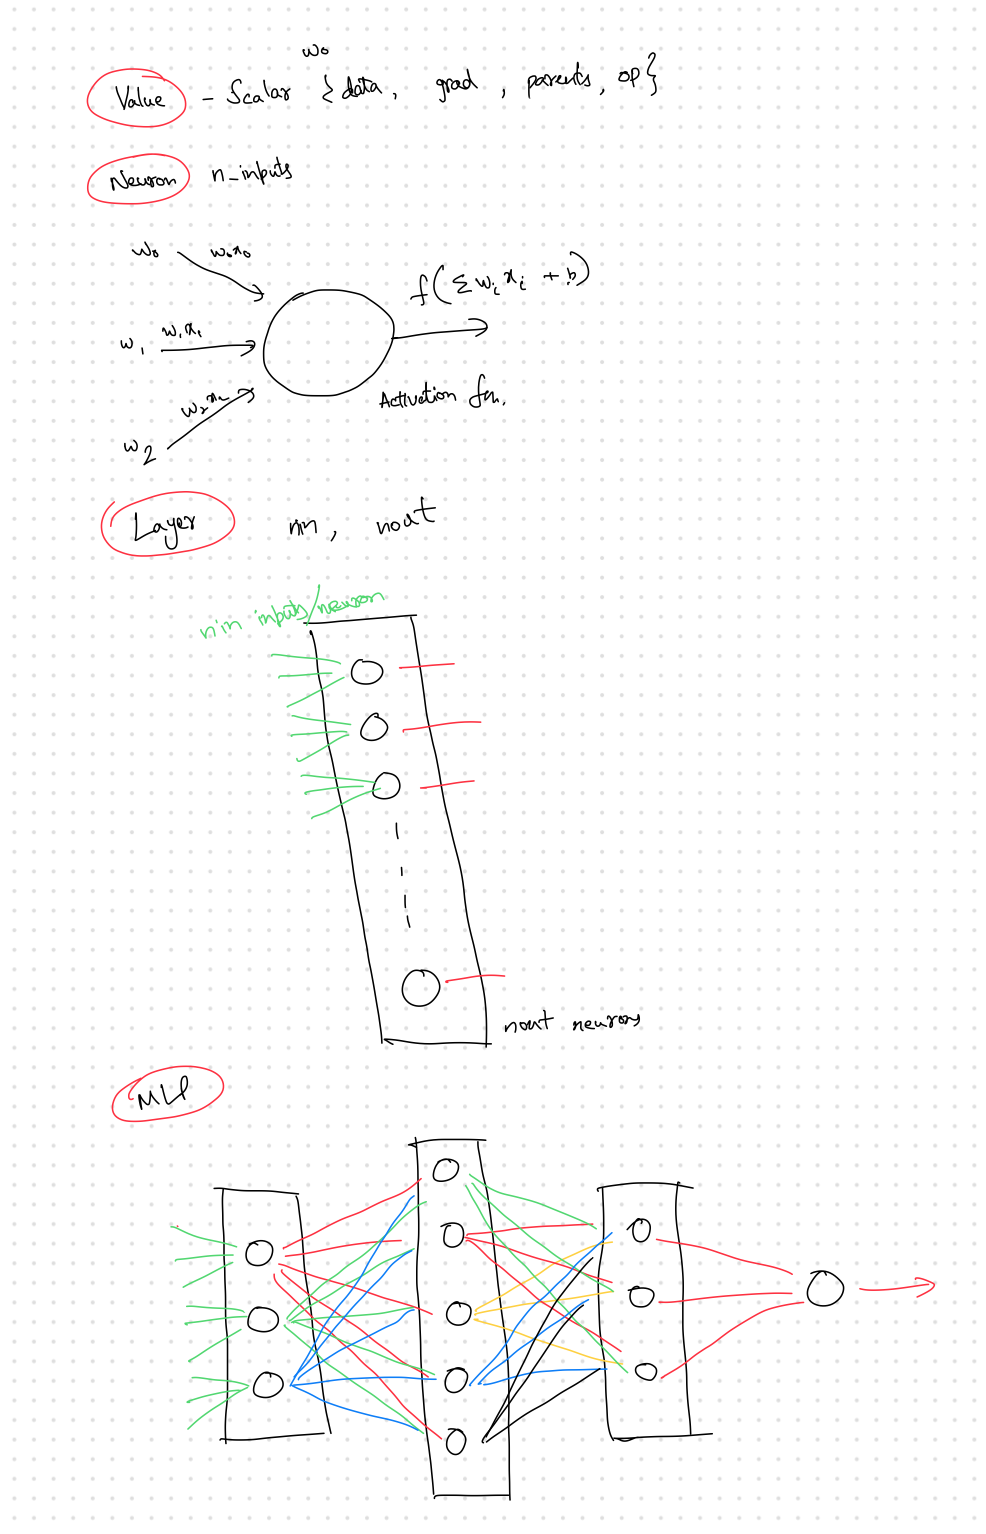 w₀
Value - Scalar {data, grad, parents, op}
Neuron n_inputs
w₀ w₀x₀
f(Σwᵢxᵢ + b)
w₁ w₁x₁
w₂x₂
Activation fn.
w₂
Layer nin, nout
nin inputs/neuron
nout neurons
MLP